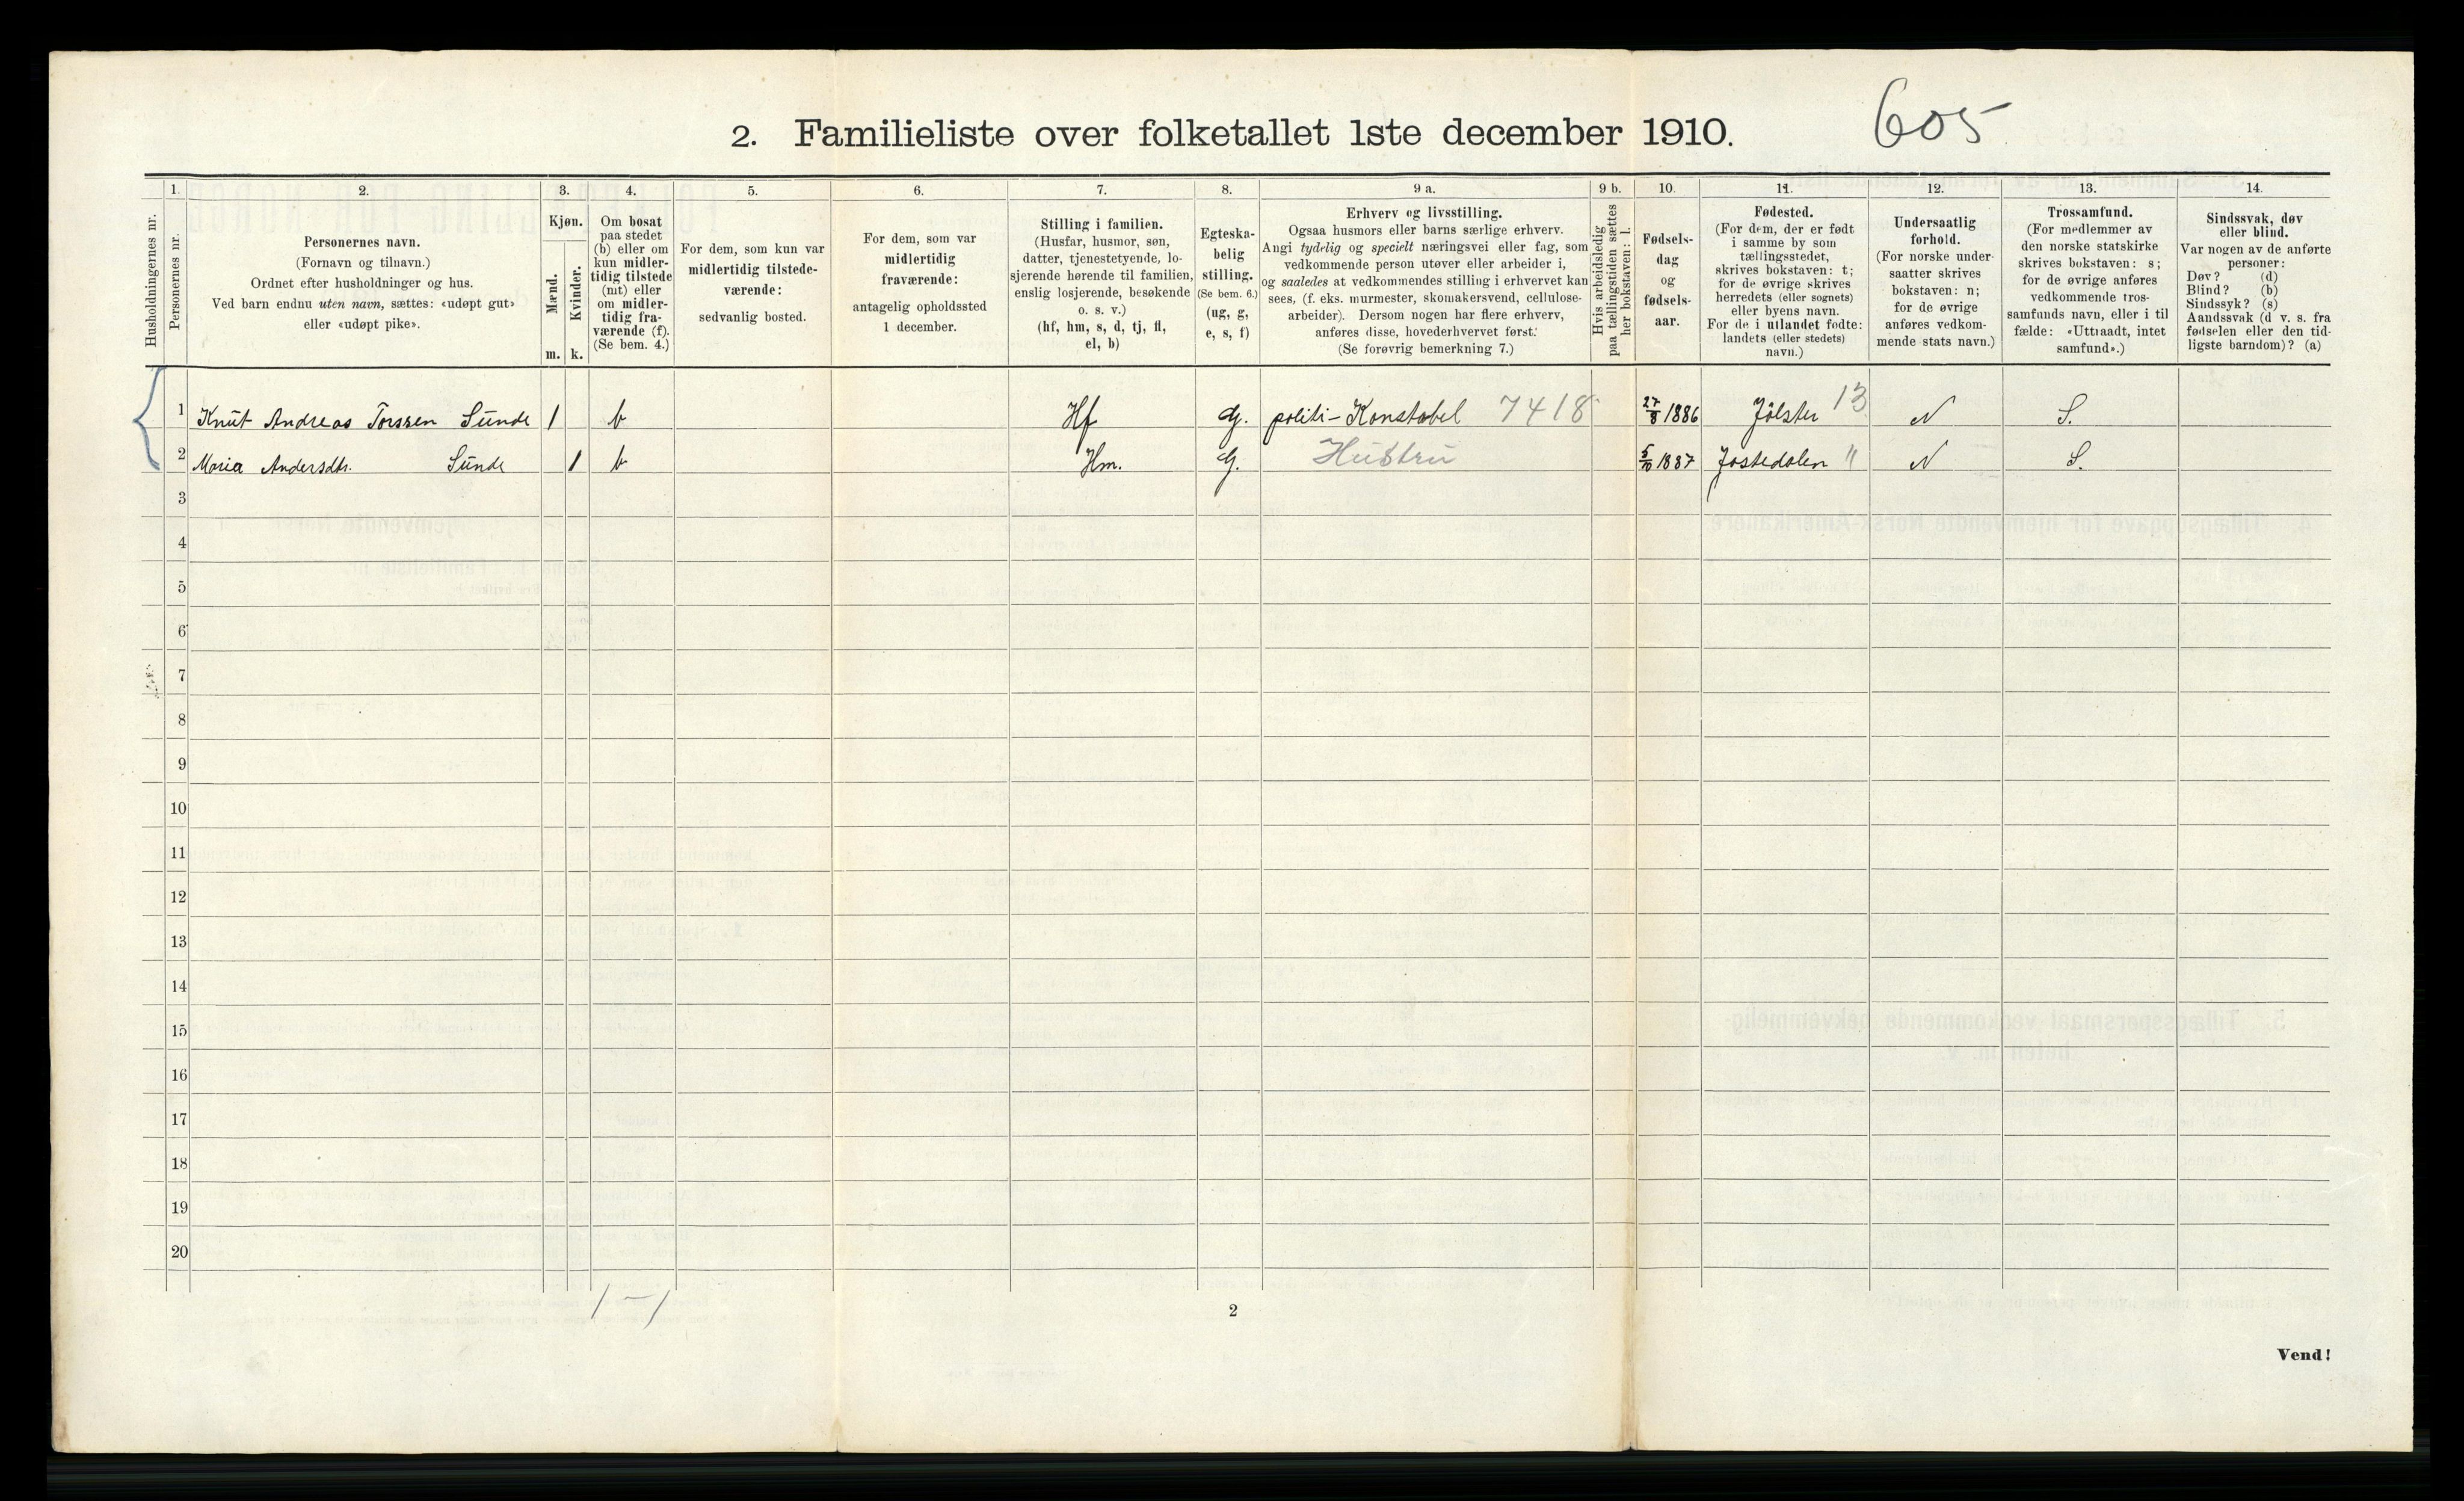 605
2. Familieliste over folketallet 1ste december 1910.
1. 2. 3. 4. 5. 6. 7. 8. 9 a. 9 b. 10. 11. 12. 13. 14.
Husholdningernes nr.
Personernes nr.
Personernes navn.
(Fornavn og tilnavn.)
Ordnet efter husholdninger og hus.
Ved barn endnu uten navn, sættes: «udøpt gut»
eller «udøpt pike».
Kjøn.
Mænd.
Kvinder.
m. k.
Om bosat
paa stedet
(b) eller om
kun midler-
tidig tilstede
(mt) eller
om midler-
tidig fra-
værende (f).
(Se bem. 4.)
For dem, som kun var
midlertidig tilstede-
værende:
sedvanlig bosted.
For dem, som var
midlertidig
fraværende:
antagelig opholdssted
1 december.
Stilling i familien.
(Husfar, husmor, søn,
datter, tjenestetyende, lo-
sjerende hørende til familien,
enslig losjerende, besøkende
o. s. v.)
(hf, hm, s, d, tj, fl,
el, b)
Egteska-
belig
stilling.
(Se bem. 6.)
(ug, g,
e, s, f)
Erhverv og livsstilling.
Ogsaa husmors eller barns særlige erhverv.
Angi tydelig og specielt næringsvei eller fag, som
vedkommende person utøver eller arbeider i,
og saaledes at vedkommendes stilling i erhvervet kan
sees, (f. eks. murmester, skomakersvend, cellulose-
arbeider). Dersom nogen har flere erhverv,
anføres disse, hovederhvervet først.
(Se forøvrig bemerkning 7.)
Hvis arbeidsledig
paa tællingstiden sættes
her bokstaven: l.
Fødsels-
dag
og
fødsels-
aar.
Fødested.
(For dem, der er født
i samme by som
tællingsstedet,
skrives bokstaven: t;
for de øvrige skrives
herredets (eller sognets)
eller byens navn.
For de i utlandet fødte:
landets (eller stedets)
navn.)
Undersaatlig
forhold.
(For norske under-
saatter skrives
bokstaven: n;
for de øvrige
anføres vedkom-
mende stats navn.)
Trossamfund.
(For medlemmer av
den norske statskirke
skrives bokstaven: s;
for de øvrige anføres
vedkommende tros-
samfunds navn, eller i til
fælde: «Uttraadt, intet
samfund».)
Sindssvak, døv
eller blind.
Var nogen av de anførte
personer:
Døv? (d)
Blind? (b)
Sindssyk? (s)
Aandssvak (d v. s. fra
fødselen eller den tid-
ligste barndom)? (a)
1 Knut Andreas Torssen Sunde 1 b Hf g. politi-Konstabel 7418 27/8 1886 Jölster 13 N S.
2 Maria Andersdtr. Sunde 1 b Hm. g. Hustru 5/10 1887 Jostedalen 11 N S.
3
4
5
6
7
8
9
10
11
12
13
14
15
16
17
18
19
20
1 - 1
2
Vend!